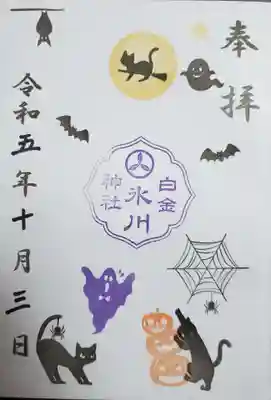 奉拝
白金
氷川
神社
令和五年十月三日